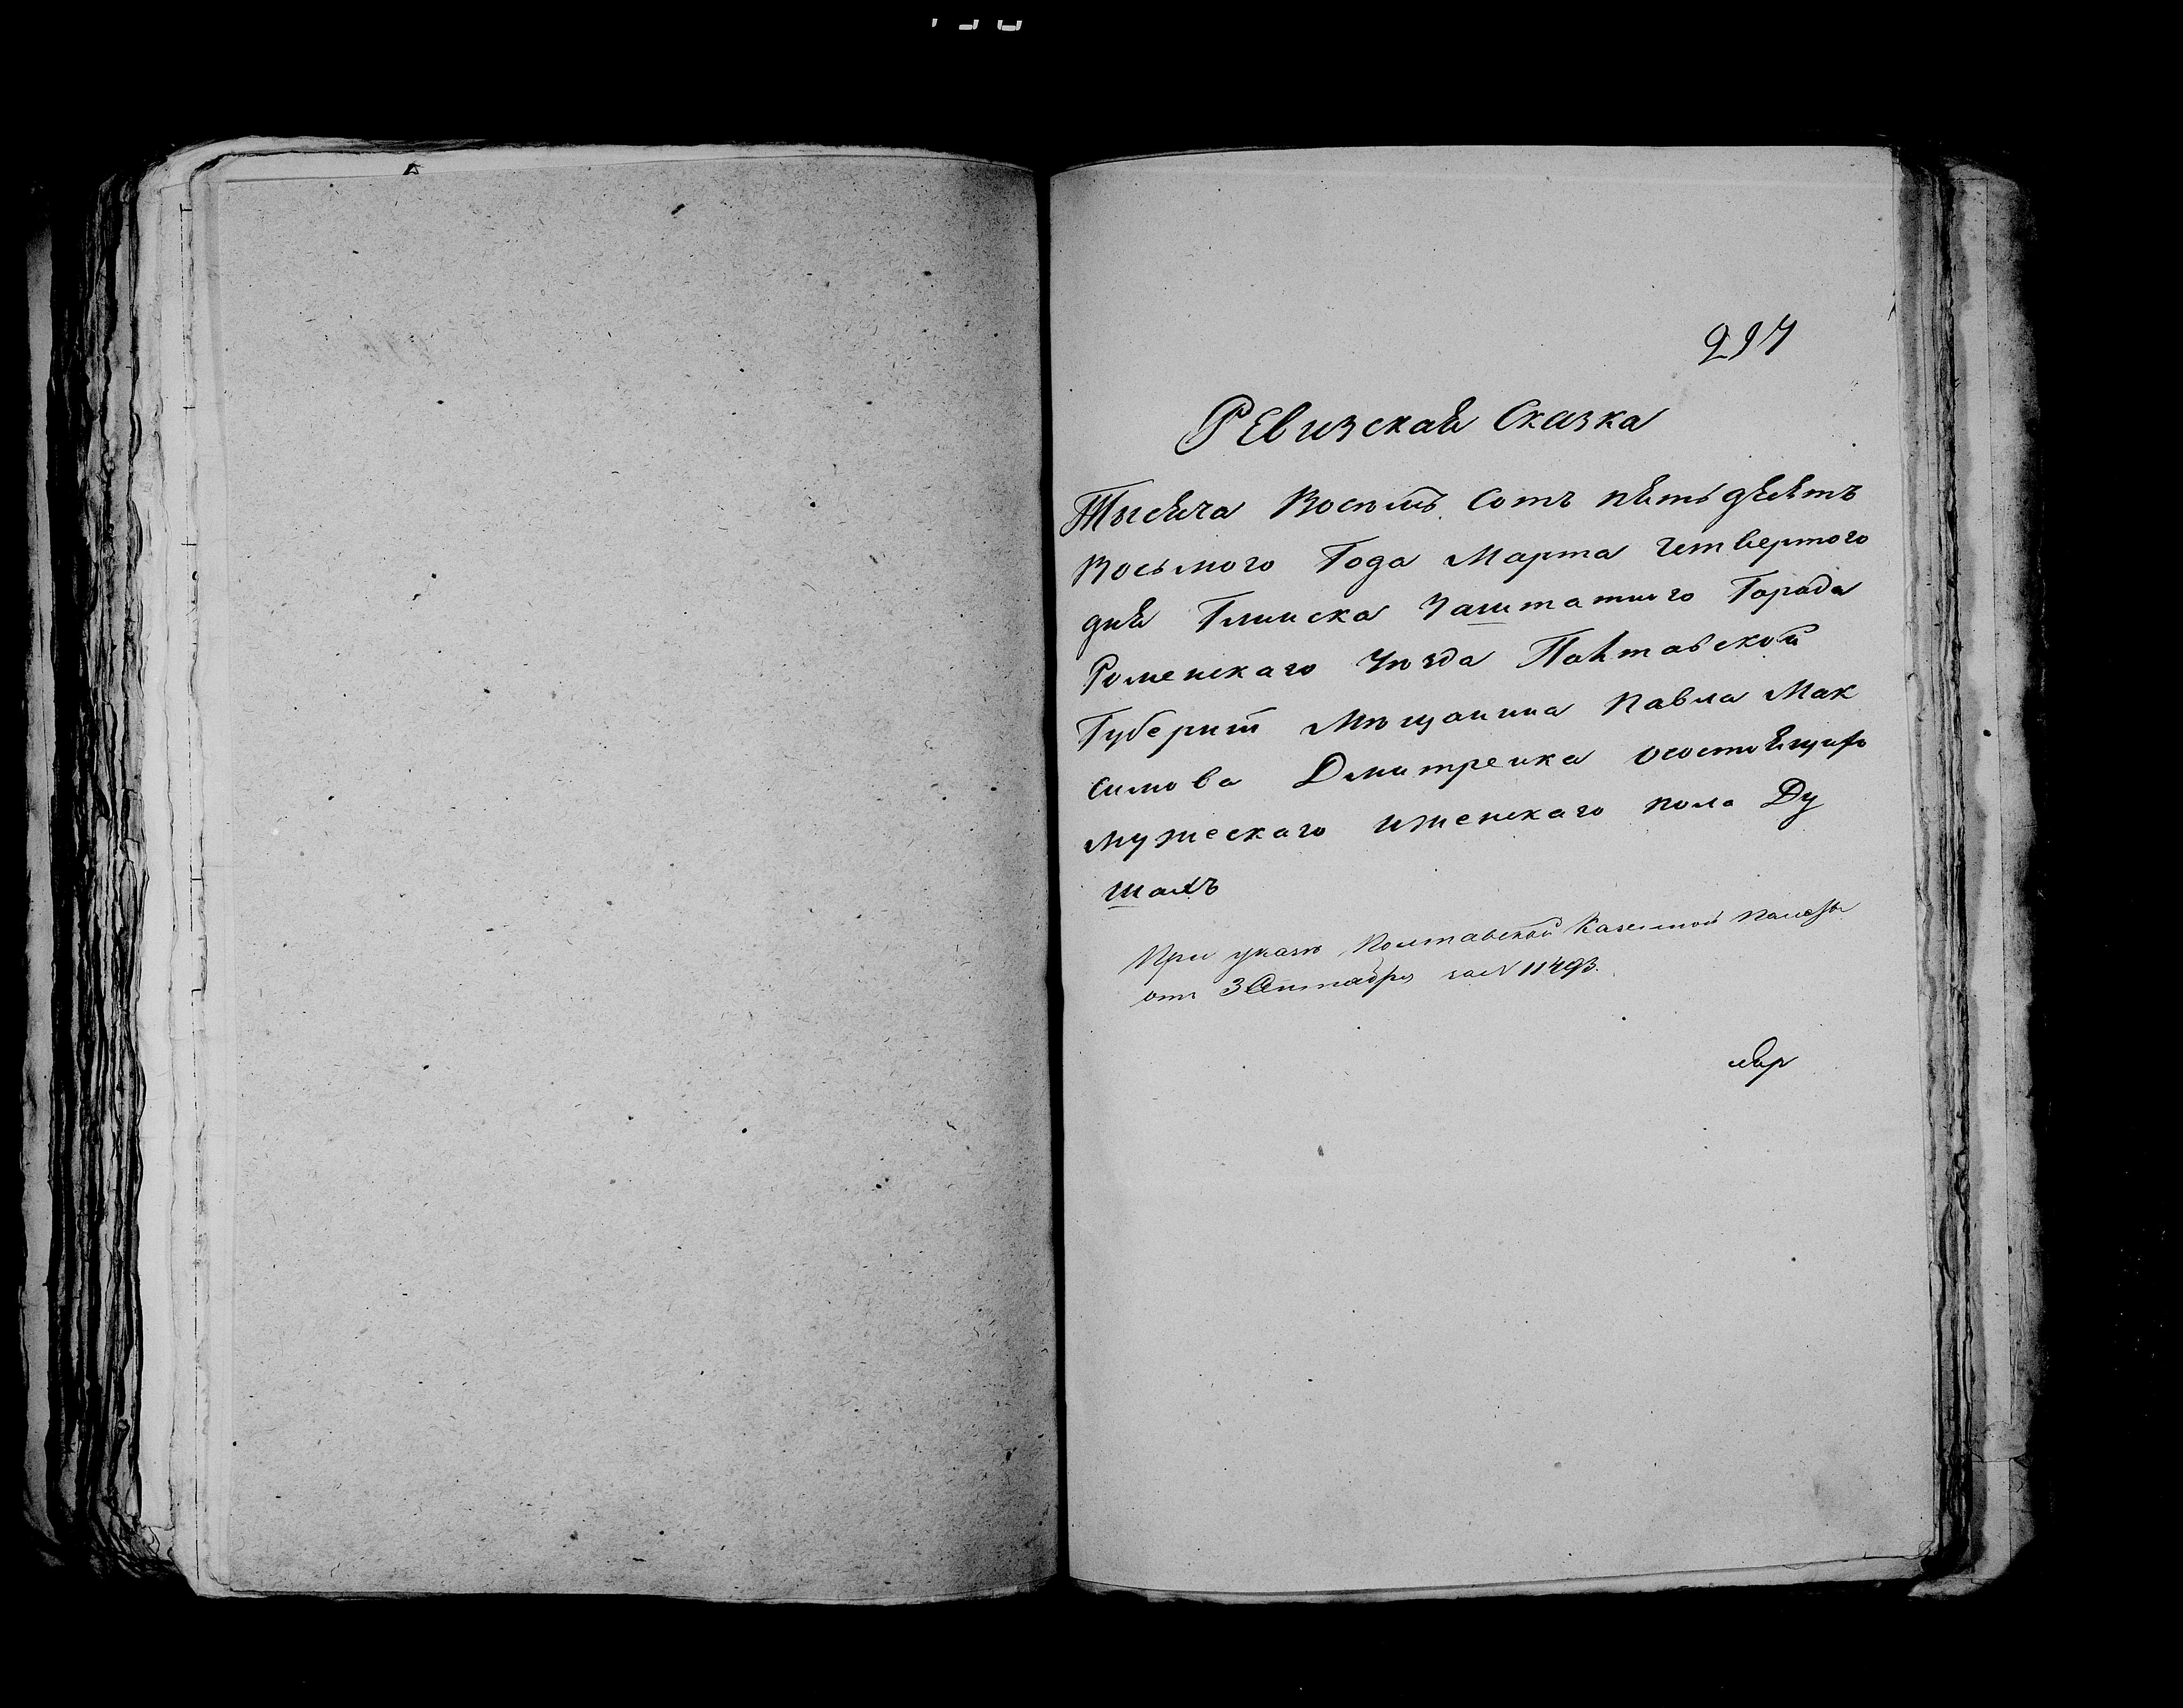 297
Ревизская Сказка
Тысяча Восемь Сотъ пятьдесятъ
Восьмого Года Марта Четвертого
дня Глинска Заштатнего Города
Роменскаго Уезда Полтавской
Губернии Мещанина Павла Мак
симова Дмитренка осостоящихъ
мужескаго иженскаго пола Ду
шахъ
При указе Полтавской Казенной палаты
отъ 3 Сентября за N 11493.